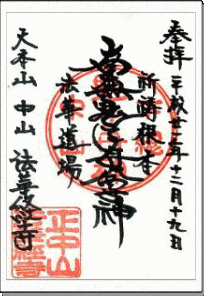 奉拝 平成 年十二月十九日
祈祷根本
南無鬼子母尊神
法華道場
大本山 中山 法華経寺
正中山